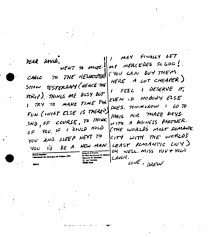 DEAR DAVID,
WENT TO MONTE-
CARLO TO THE HELICOPTER
SHOW YESTERDAY (HENCE THE
THINGS ARE BUSY BUT
I TRY TO MAKE TIME FOR
FUN (WHAT ELSE IS THERE)
AND, OF COURSE, TO THINK
OF YOU. IF I COULD HOLD
YOU AND SLEEP NEXT TO
YOU I'D BE A NEW MAN.
I MAY FINALLY GET
MY MERCEDES SL600!
(YOU CAN BUY THEM
HERE A LOT CHEAPER)
I FEEL I DESERVE IT,
EVEN IF NOBODY ELSE
DOES. TOMORROW I GO TO
PARIS FOR THREE DAYS
WITH A BUSINESS PARTNER.
(THE WORLDS MOST ROMANTIC
CITY WITH THE WORLDS
LEAST ROMANTIC GUY)
OH WELL. MISS YOU +
LOVE, DREW